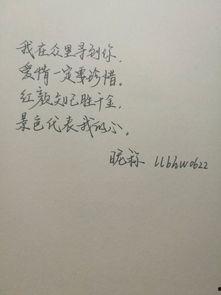 我在众里寻到你，
爱情一定要珍惜，
红颜知己胜千金，
景色代表我的心。
昵称 llbhw0622